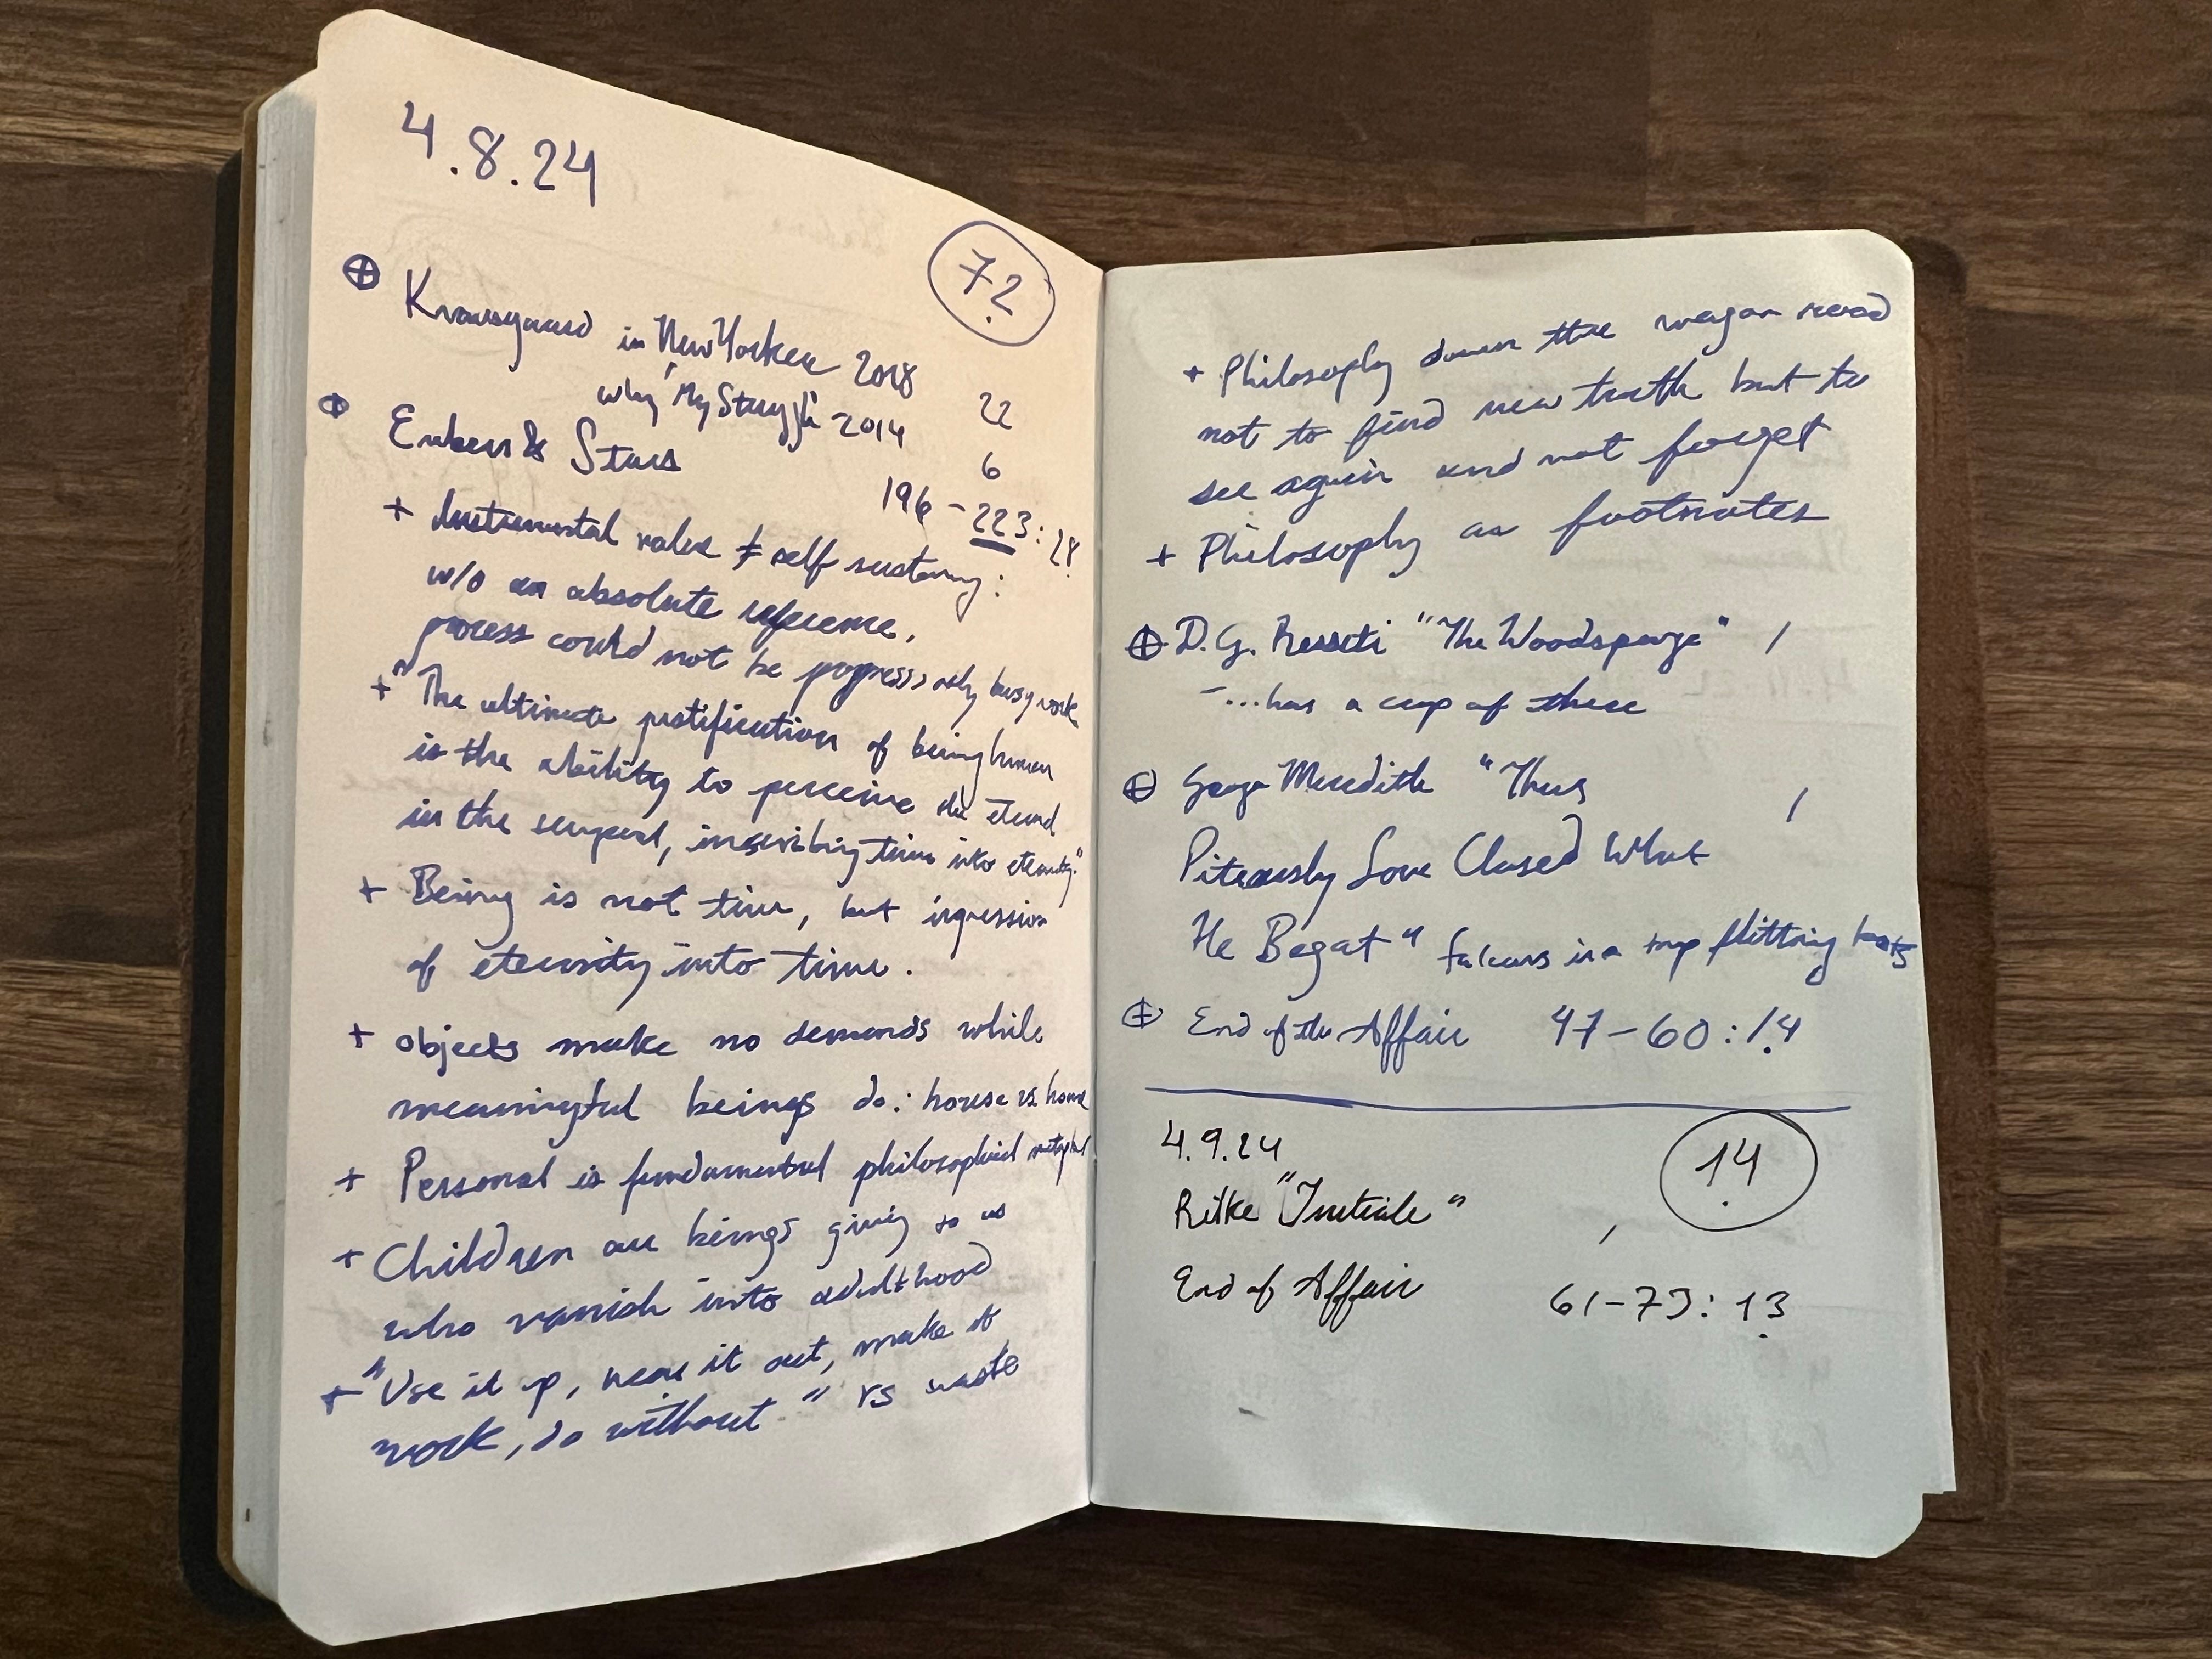 4.8.24
72
Knausgaard in New Yorker 2018 22
why "My Struggle" 2014 6
Embers & Stars 196-223:28
+ Instrumental value ≠ self sustaining:
w/o an absolute reference,
process could not be progress; only busy work
+ "The ultimate justification of being human
is the ability to perceive the eternal
in the temporal, inscribing time into eternity."
+ Being is not time, but ingression
of eternity into time.
+ objects make no demands while
meaningful beings do: house vs. home
+ Personal is fundamental philosophical
+ Children are beings giving to us
who vanish into adulthood
+ "Use it up, wear it out, make it
work, do without" vs waste
+ Philosophy down the wagon road
not to find new truth but to
see again and not forget
+ Philosophy as footnotes
D.G. Rossetti "The Woodspurge" 1
-...has a cup of three
George Meredith "Thus 1
Piteously Love Closed What
He Begat" falcons in a trap flitting bats
End of the Affair 47-60:14
4.9.24
14
Rilke "Initiale" 1
End of Affair 61-73:13